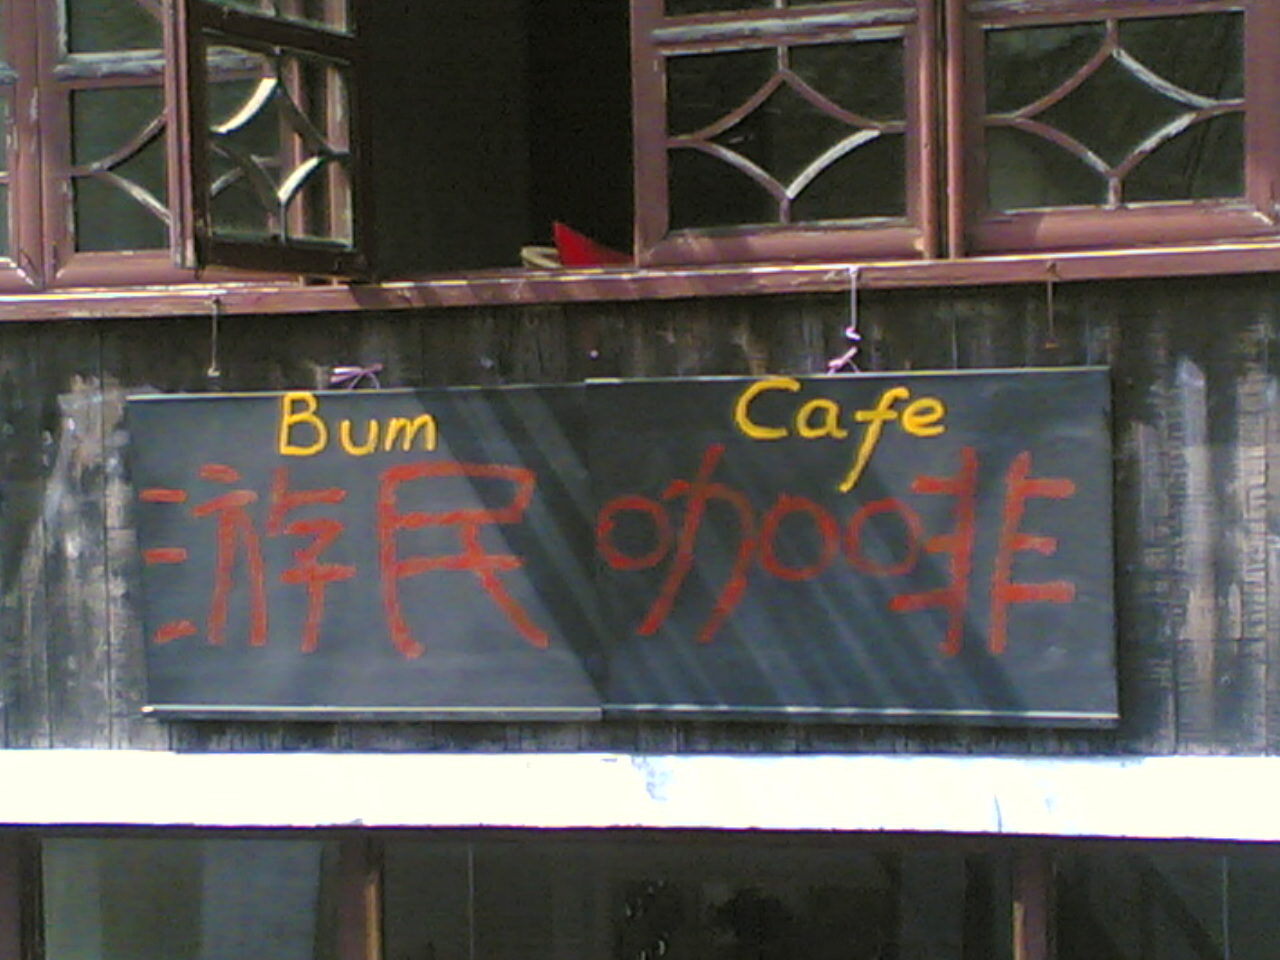 Bum Cafe
游民咖啡